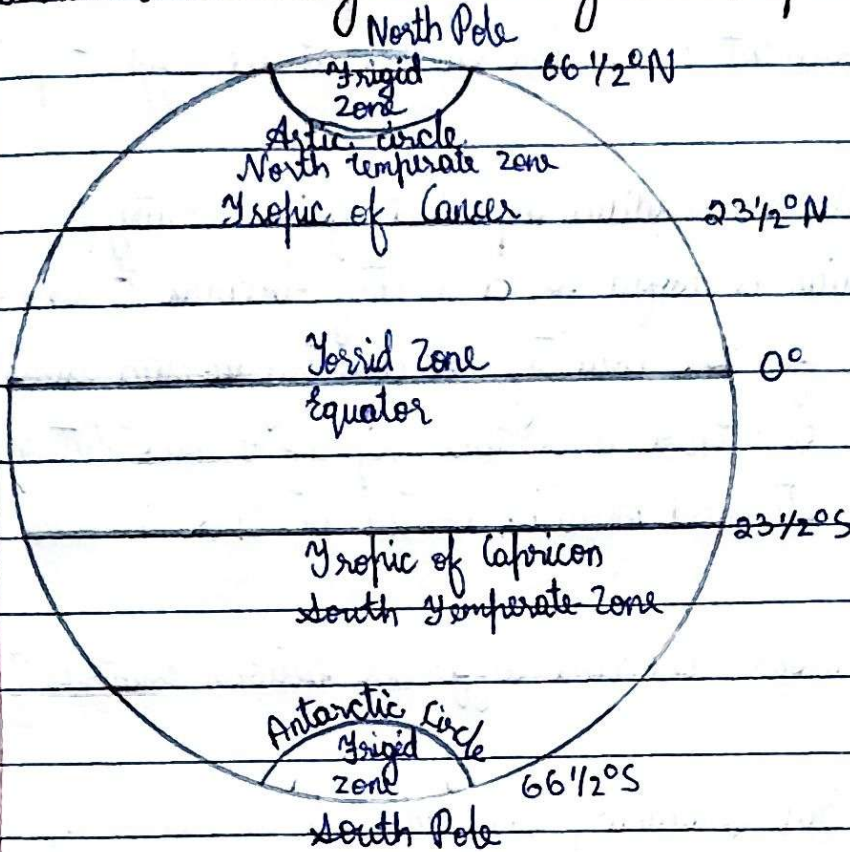 North Pole
Frigid 66 1/2° N
Zone
Artic circle
North Temperate zone
Tropic of Cancer 23 1/2° N
Torrid Zone 0°
Equator
23 1/2° S
Tropic of Capricon
South Temperate Zone
Antarctic Circle
Frigid
zone 66 1/2° S
South Pole